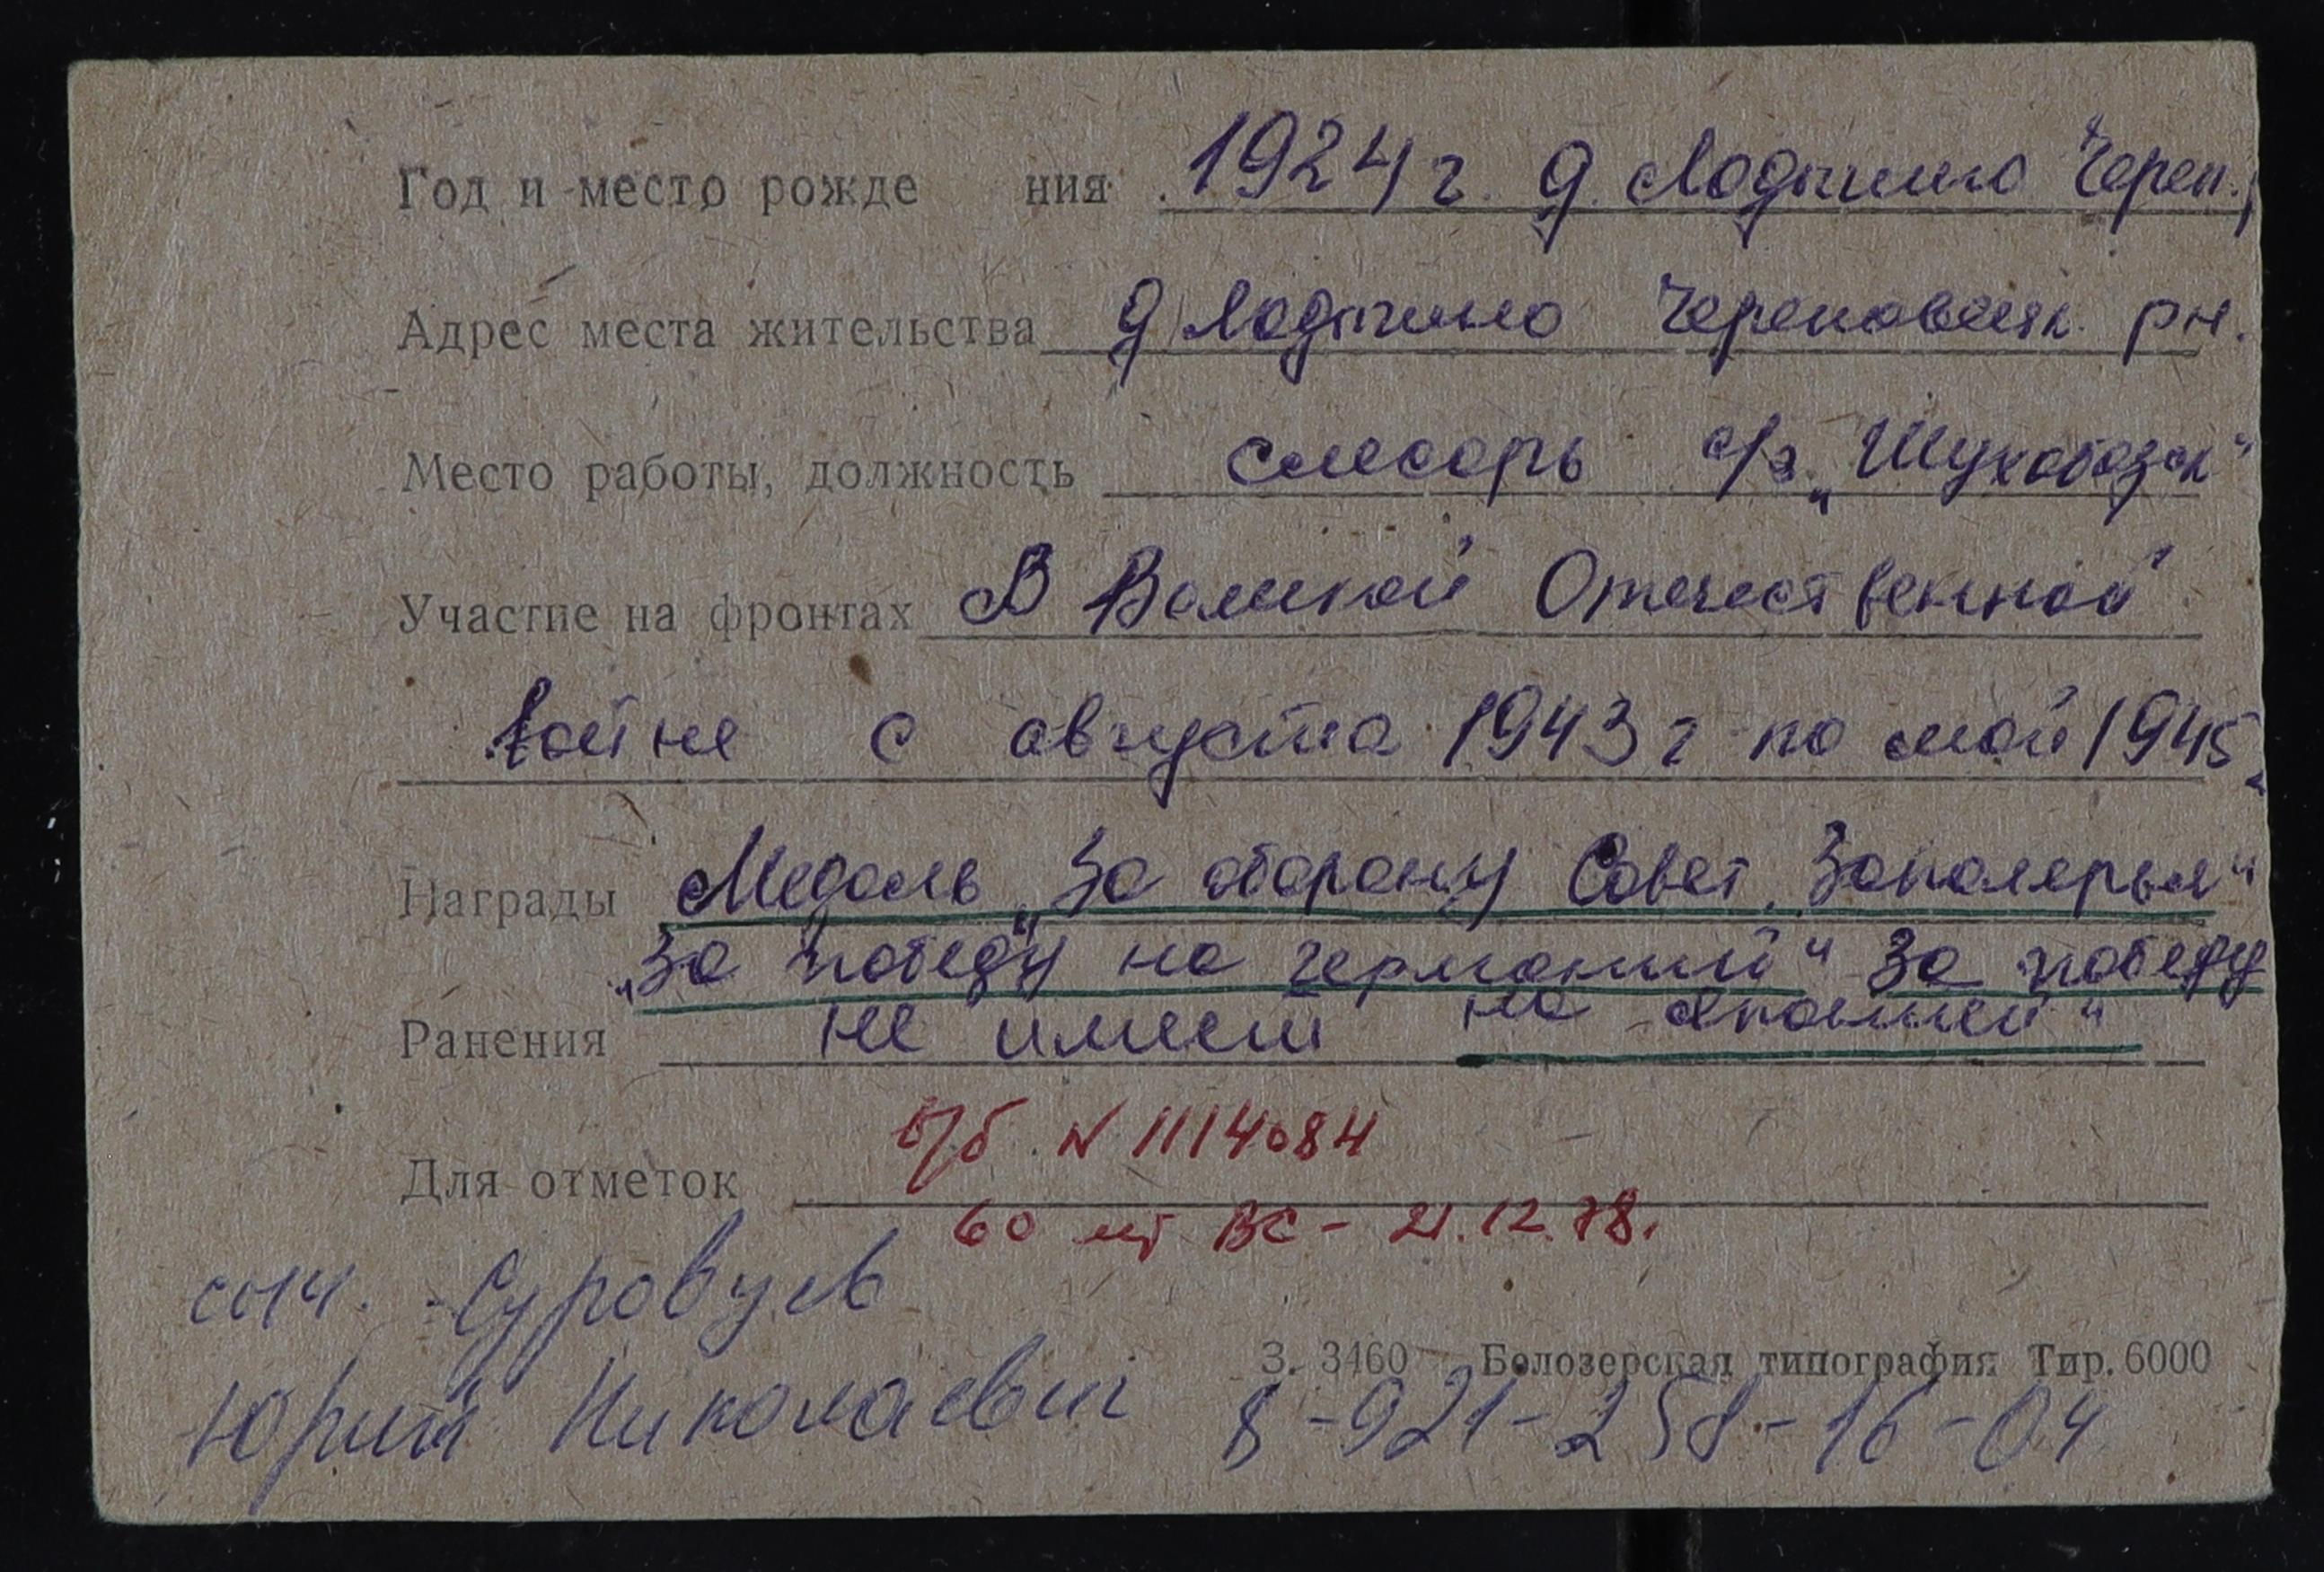 Год и место рождения 1924 г. д. Лодыгино Череп.
Адрес места жительства д Лодыгино Череповецк. рн.
Место работы, должность слесарь с/з „Шухободск"
Участие на фронтах В Великой Отечественной
войне с августа 1943 г по май 1945
Награды Медаль „За оборону Совет. Заполярья"
„За победу на германией" За победу
на японией"
Ранения не имеет
в/б N 1114084
Для отметок
60 лет ВС - 21.12.78.
сын. Суровцев
Юрий Николаевич
З. 3460 Белозерская типография Тир. 6000
8-921-258-16-04